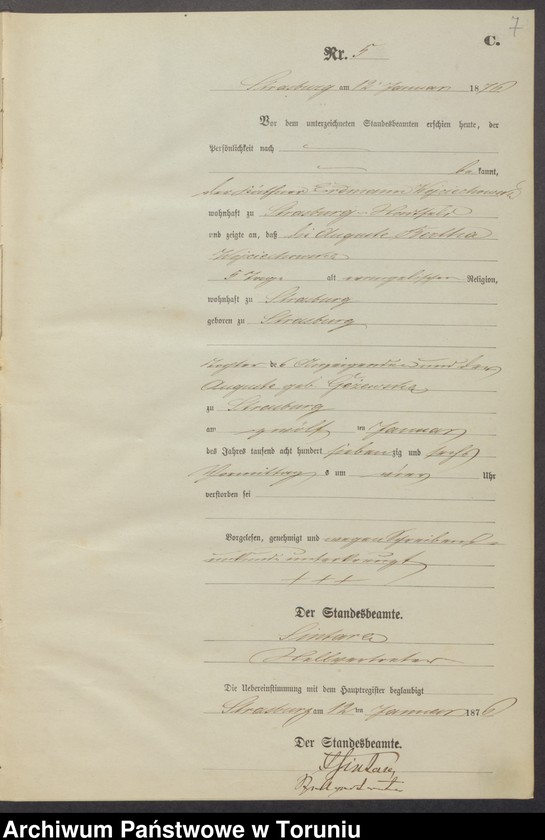 7
C.
Nr. 5
Strasburg am 12 Januar 1876
Vor dem unterzeichneten Standesbeamten erschien heute, der
Persönlichkeit nach
be kannt,
der Erdmann
wohnhaft zu Strasburg
und zeigte an, daß die Auguste Bertha
5 Tage alt evangelischer Religion,
wohnhaft zu Strasburg
geboren zu Strasburg
Tochter des Anzeigenden und der
Auguste geb.
zu Strasburg
am zwölf ten Januar
des Jahrs tausend acht hundert sieben zig und sechs
Vormittag s um vier Uhr
verstorben sei
Vorgelesen, genehmigt und wegen Schreibens
unkunde unterkreuzt
+ + +
Der Standesbeamte.
Stellvertreter
Die Uebereinstimmung mit dem Hauptregister beglaubigt
Strasburg am 12 ten Januar 1876
Der Standesbeamte.
Stellvertreter
Archiwum Państwowe w Toruniu